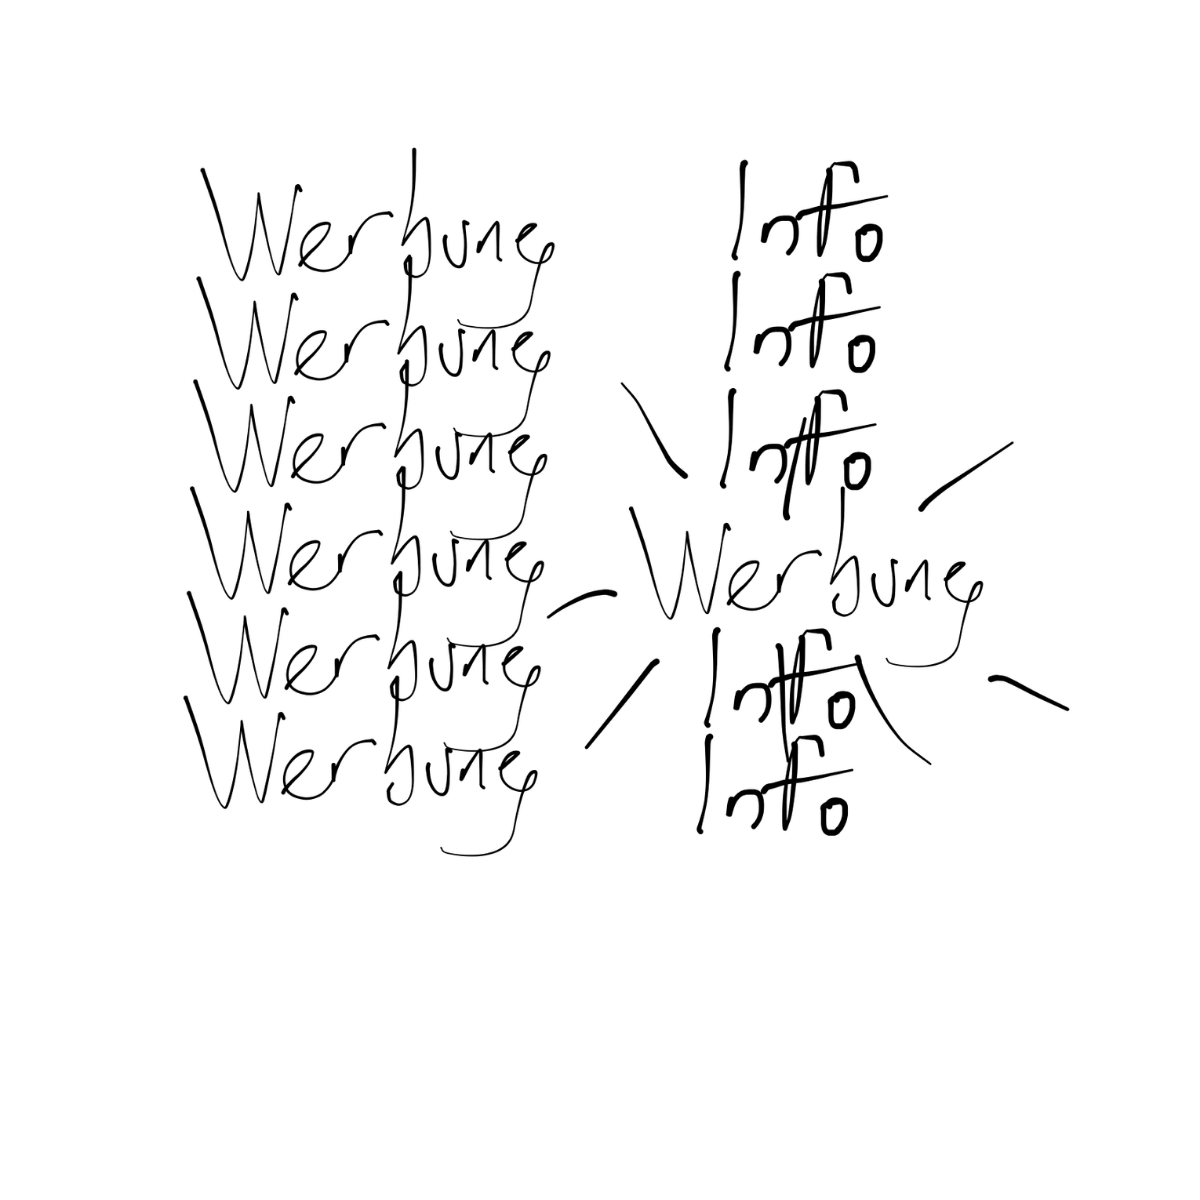 Werbung
Werbung
Werbung
Werbung
Werbung
Werbung
Info
Info
Info
Werbung
Info
Info